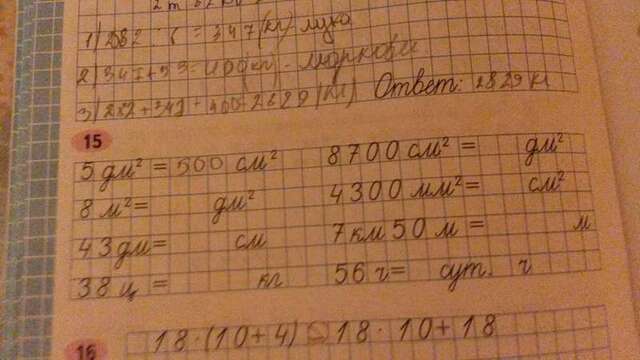 2 т
1) 2082 : 6 = 347 (кг) лука
2) 347+53=400(кг) - моркови
3) 2082+347+400=2829 (кг) Ответ: 2829 кг
15
5 дм² = 500 см² 8700 см² = дм²
8 м² = дм² 4300 мм² = см²
43 дм = см 7 км 50 м = м
38 ц = кг 56 ч = сут. ч
16 18·(10+4) 18·10+18